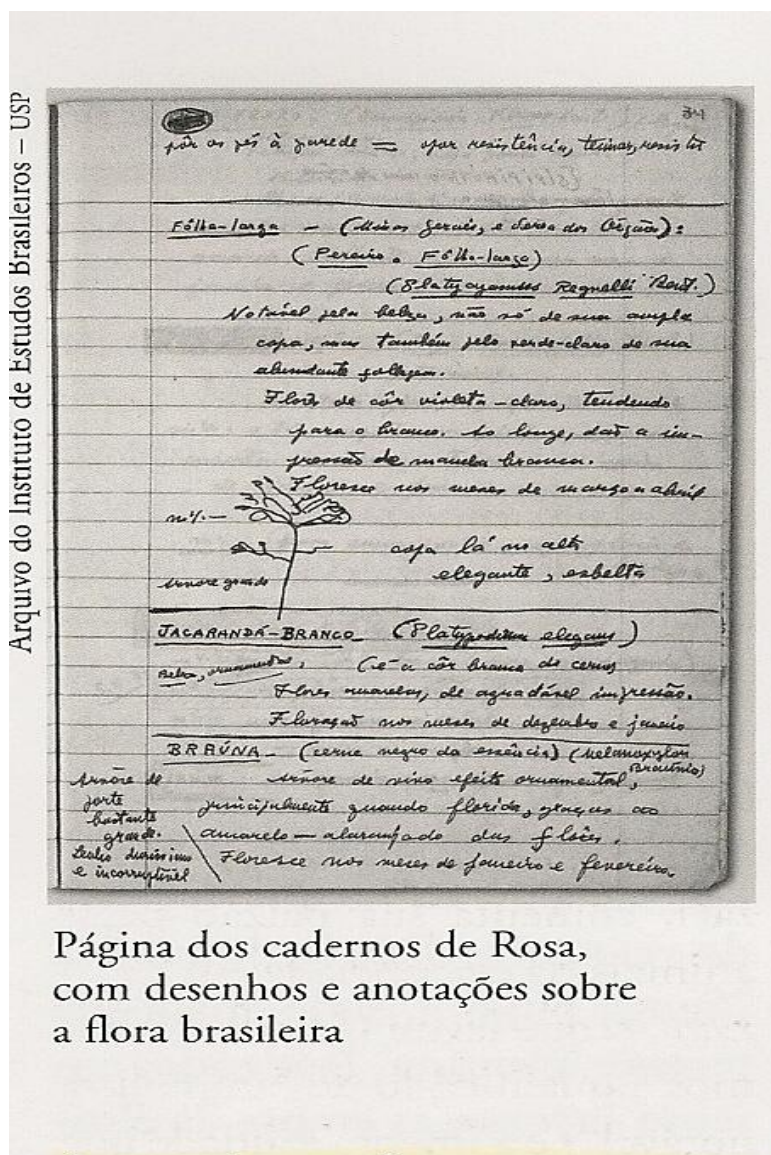 Arquivo do Instituto de Estudos Brasileiros – USP
34
pôr os pés à parede = opor resistência, teimar, resistir
Fôlha-larga — (Minas Gerais, e Serra dos Órgãos):
(Pereiro. Fôlha-larga)
(Platycyamus Regnelli Bent.)
Notável pela beleza, não só de sua ampla
copa, mas também pelo verde-claro de sua
abundante folhagem.
Flores de côr violeta-claro, tendendo
para o branco. Ao longe, dão a im-
pressão de mancha branca.
Floresce nos meses de março a abril
copa lá no alto
elegante, esbelta
árvore grande
JACARANDÁ-BRANCO (Platypodium elegans)
Belas, ornamentais, (é a côr branca do cerne)
Flores amarelas, de agradável impressão.
Floração nos meses de dezembro e janeiro
BRAÚNA — (cerne negro da essência) (Melanoxylon
Braunia)
árvore de vivo efeito ornamental,
principalmente quando florida, graças ao
amarelo-alaranjado das flôres.
Floresce nos meses de janeiro e fevereiro.
Árvore de
porte
bastante
grande.
Lenho duríssimo
e incorruptível
Página dos cadernos de Rosa,
com desenhos e anotações sobre
a flora brasileira